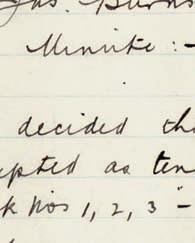 Jas. Burns
Minute :-
decided th
epted as ten
k Nos 1, 2, 3 "-